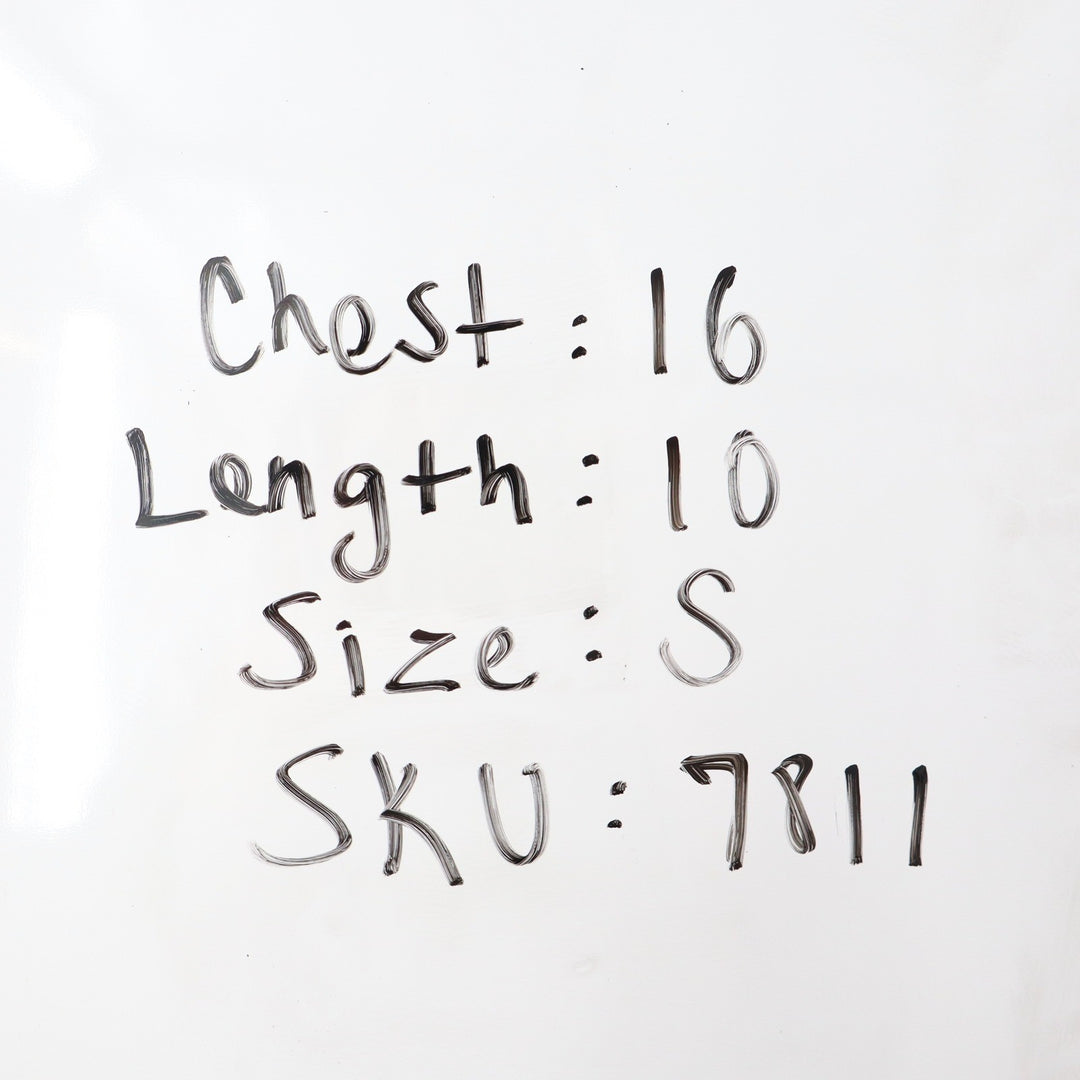 Chest: 16
Length: 10
Size: S
SKU: 7811